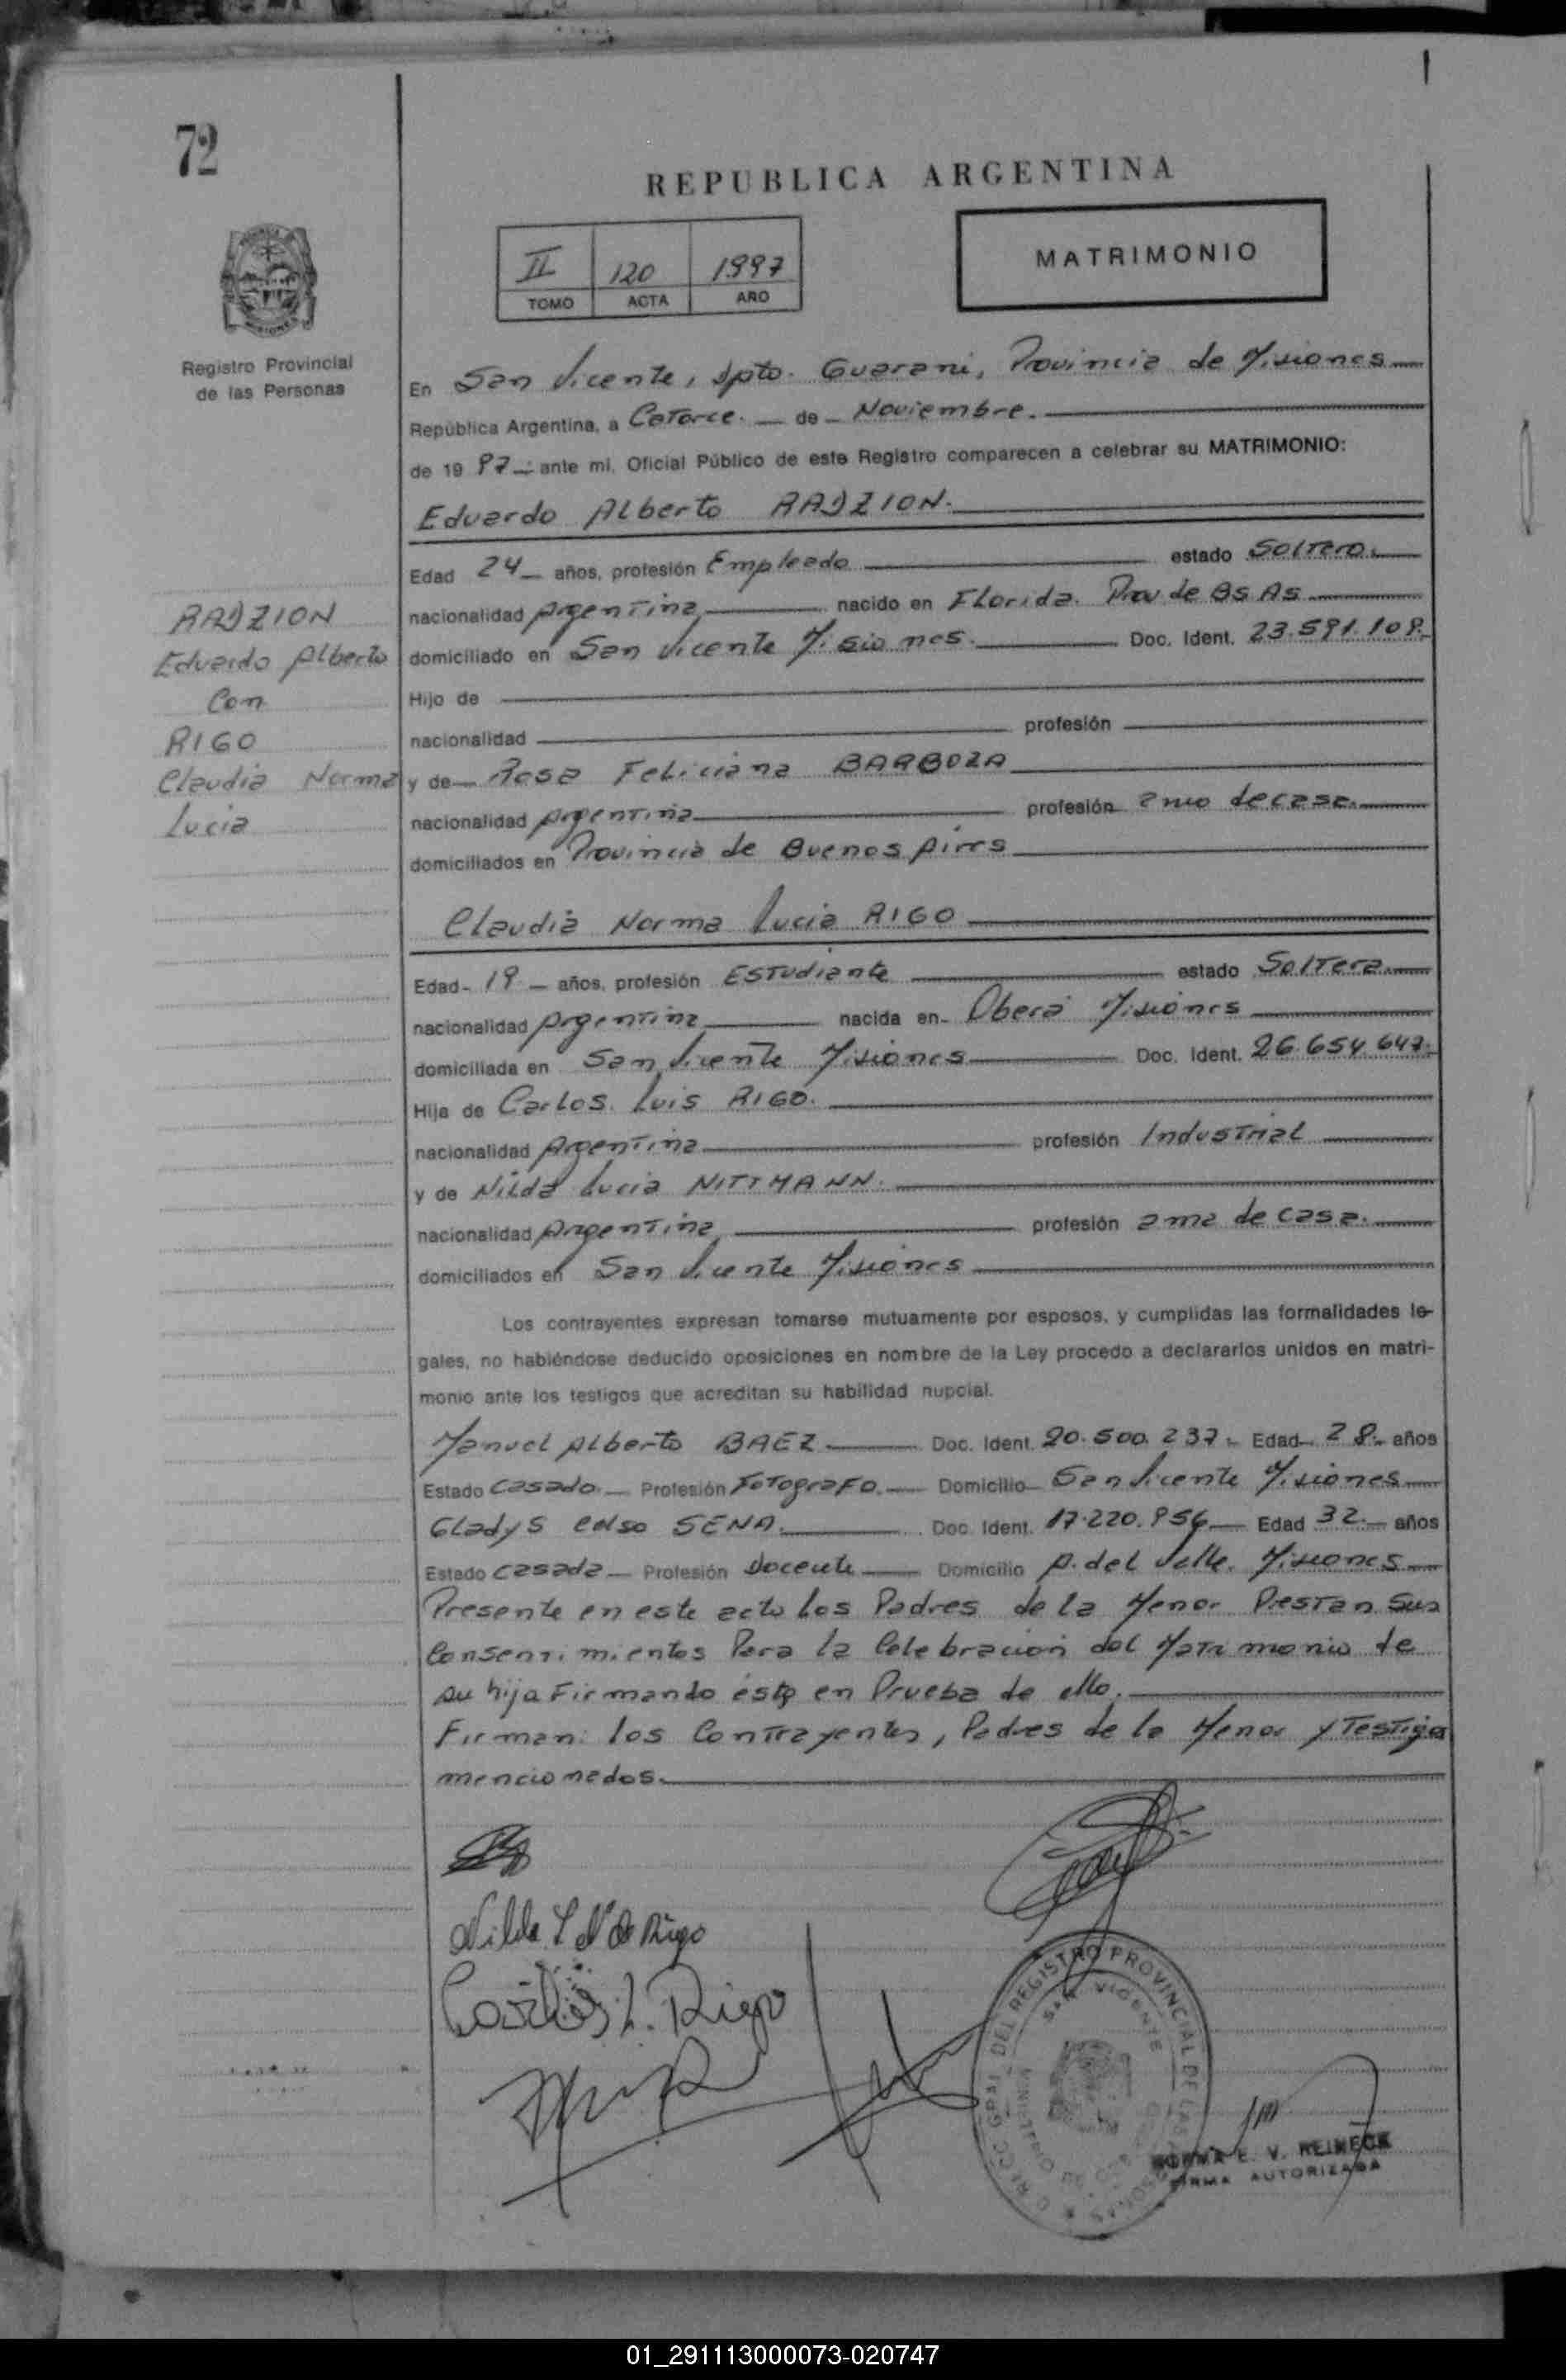 72
REPUBLICA ARGENTINA
II 120 1997
TOMO ACTA AÑO
MATRIMONIO
Registro Provincial
de las Personas
En San Vicente, Dpto. Guarani, Provincia de Misiones
República Argentina, a Catorce. de Noviembre.
de 19 97 ante mi, Oficial Público de este Registro comparecen a celebrar su MATRIMONIO:
Eduardo Alberto RADZION.
Edad 24 años, profesión Empleado estado Soltero.
nacionalidad Argentina nacido en Florida. Prov de Bs As
domiciliado en San Vicente Misiones. Doc. Ident. 23.591.109.
Hijo de
nacionalidad profesión
y de Rosa Feliciana BARBOZA
nacionalidad Argentina profesión de casa.
domiciliados en Provincia de Buenos Aires
RADZION
Eduardo Alberto
Con
RIGO
Claudia Norma
Lucia
Claudia Norma Lucia RIGO
Edad 19 años, profesión Estudiante estado Soltera.
nacionalidad Argentina nacida en Oberá Misiones
domiciliada en San Vicente Misiones Doc. Ident. 26.654.647.
Hija de Carlos Luis RIGO.
nacionalidad Argentina profesión Industrial
y de Nilda Lucia NITTMANN.
nacionalidad Argentina profesión ama de casa.
domiciliados en San Vicente Misiones
Los contrayentes expresan tomarse mutuamente por esposos, y cumplidas las formalidades le-
gales, no habiéndose deducido oposiciones en nombre de la Ley procedo a declararlos unidos en matri-
monio ante los testigos que acreditan su habilidad nupcial.
Manuel Alberto BAEZ Doc. Ident. 20.500.237. Edad 28. años
Estado Casado. Profesión Fotografo. Domicilio San Vicente Misiones
Gladys SENA. Doc. Ident. 17.220.956 Edad 32. años
Estado Casada Profesión Docente Domicilio A. del Valle. Misiones
Presente en este acto los Padres de la Menor Prestan Sus
Consentimientos Para la Celebración del Matrimonio de
su hija Firmando en Prueba de ello.
Firman: los Contrayentes, Padres de la Menor y Testigos
mencionados.
Nilda L N de Rigo
Carlos L. Rigo
DEL REGISTRO PROVINCIAL DE LAS PERSONAS
SAN VICENTE
NORMA E. V. REINECK
FIRMA AUTORIZADA
01_291113000073-020747